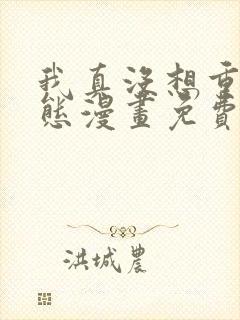 我真没想重
态漫画免費
洪城農